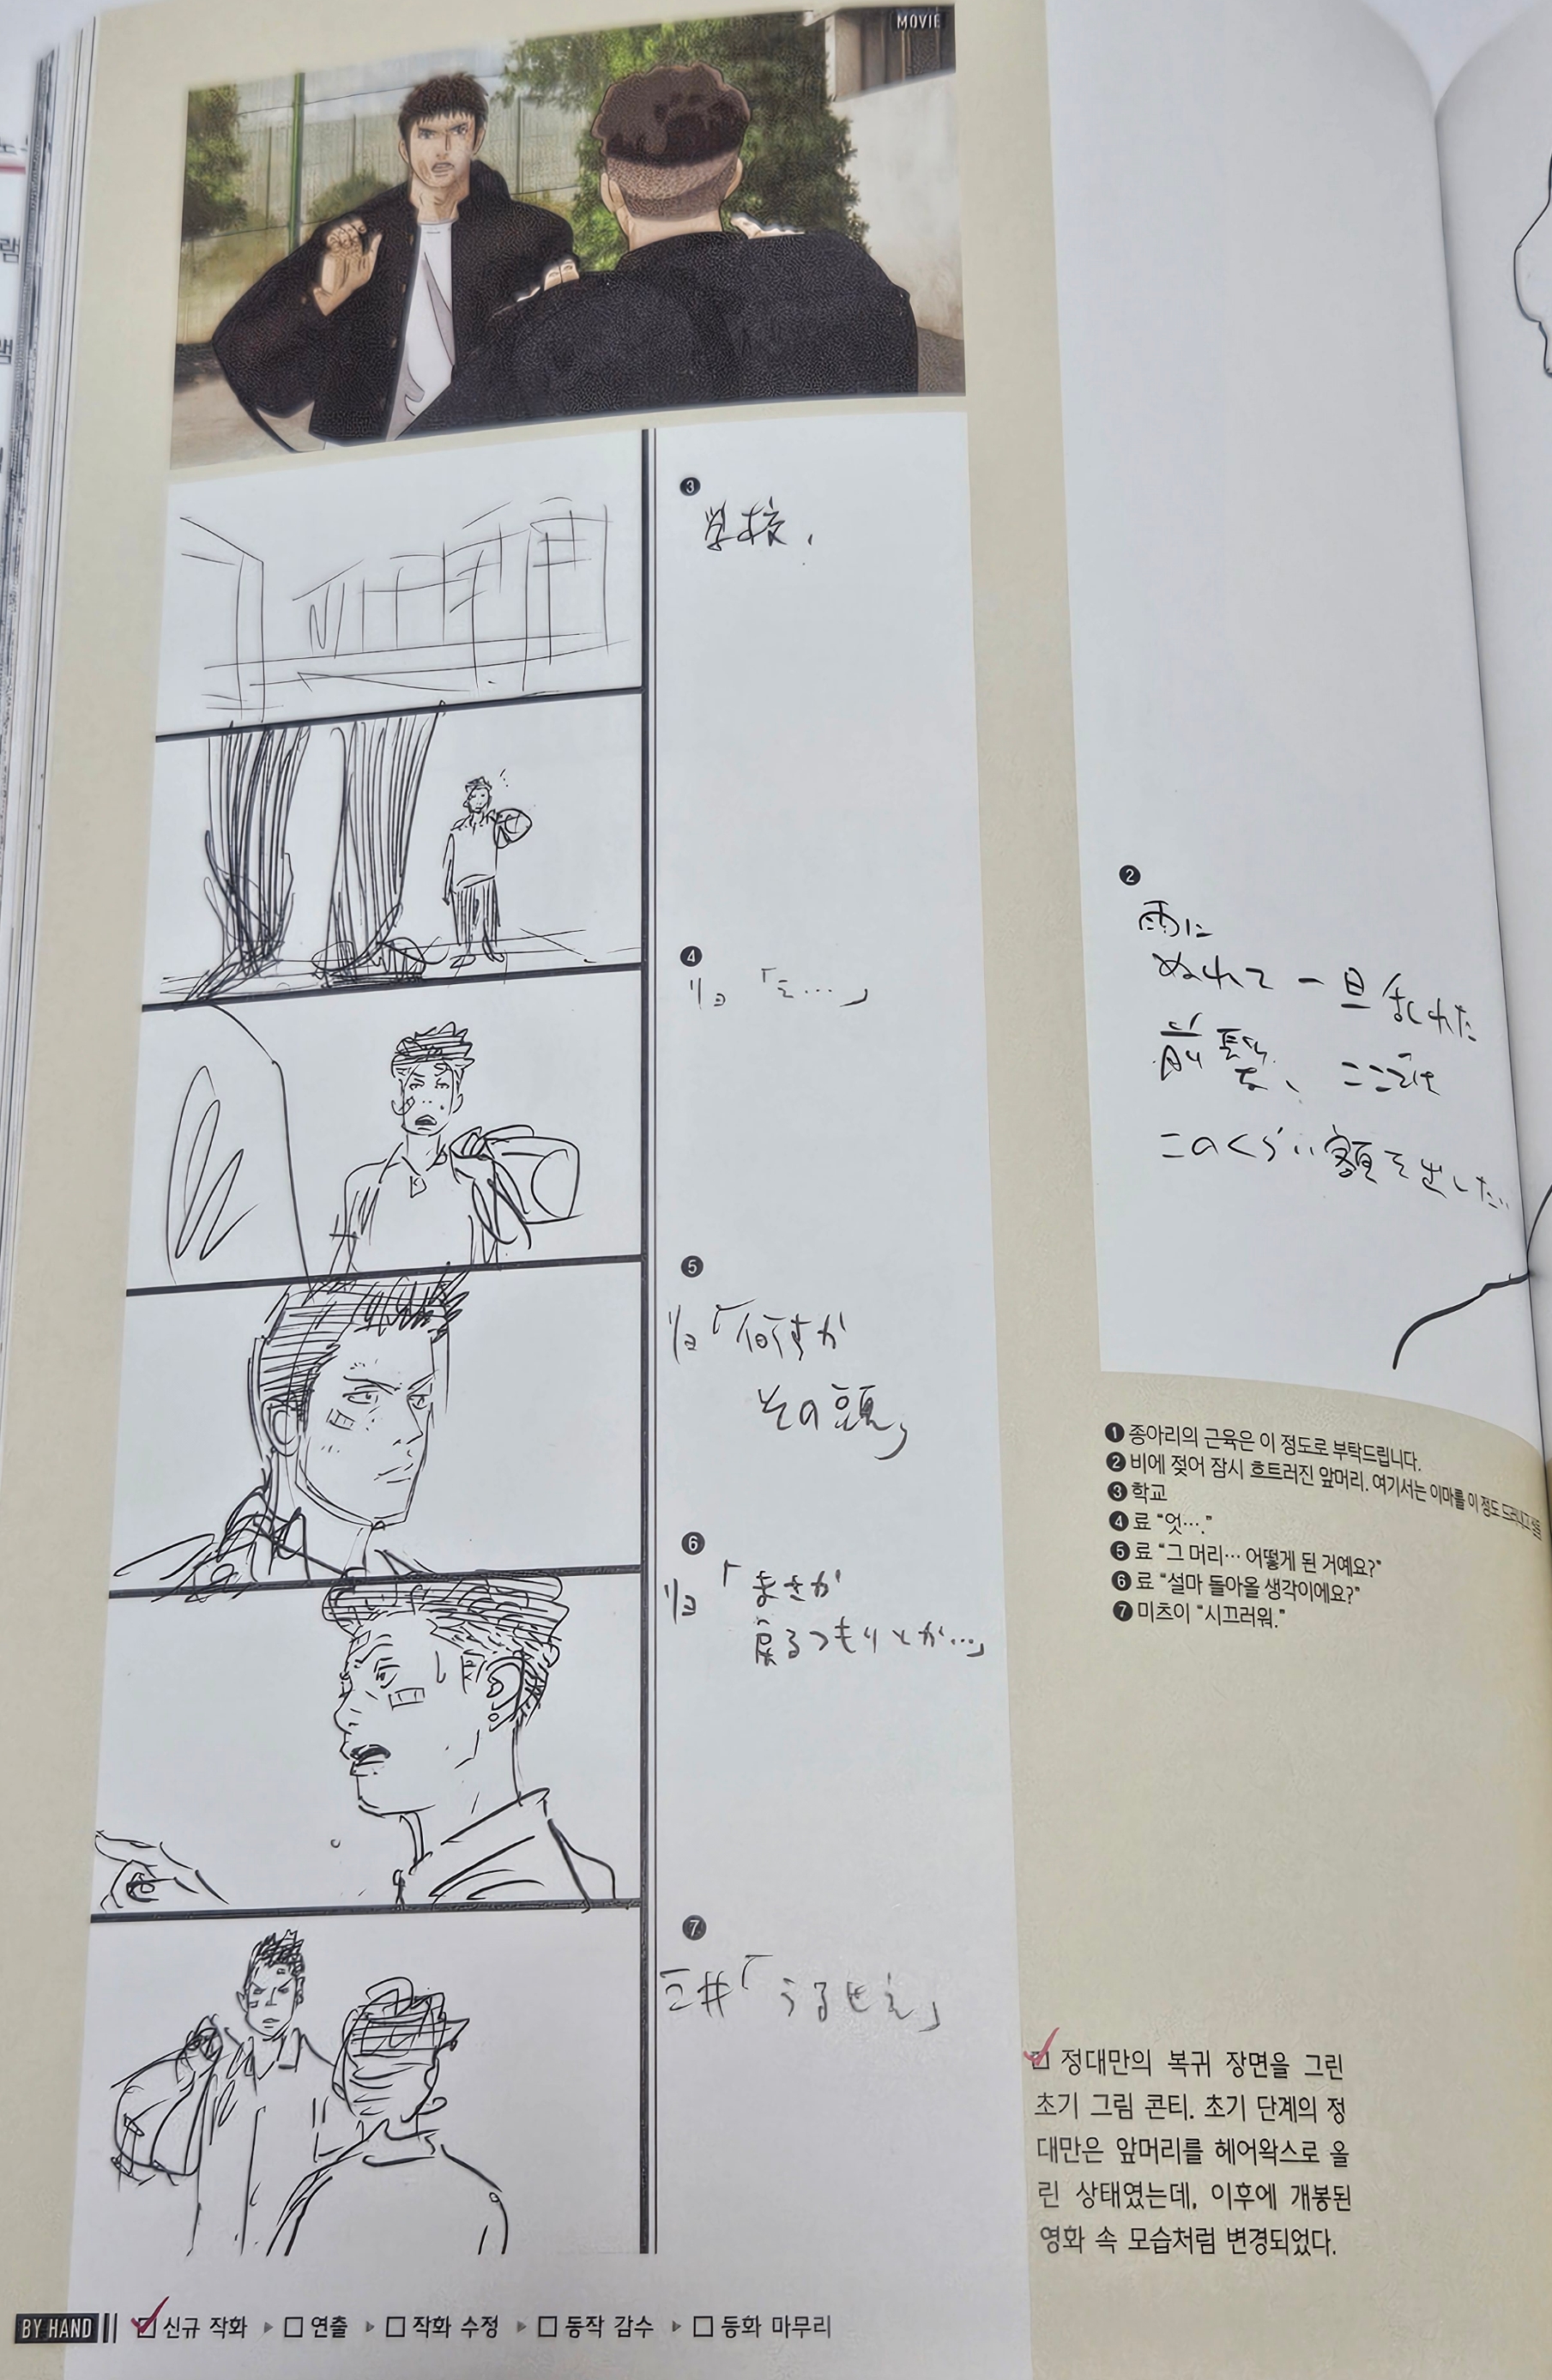 MOVIE
❸
学校.
❹
リョ「え…」
❺
リョ「何すか
その頭」
❻
リョ「まさか
戻るつもりとか…」
❼
三井「うるせえ」
❷
雨に
ぬれて 一旦乱れた
前髪を、ここでは
このくらい額を出したい
❶ 종아리의 근육은 이 정도로 부탁드립니다.
❷ 비에 젖어 잠시 흐트러진 앞머리. 여기서는 이마를 이 정도 드러내고
❸ 학교
❹ 료 “엇….”
❺ 료 “그 머리… 어떻게 된 거예요?”
❻ 료 “설마 돌아올 생각이에요?”
❼ 미츠이 “시끄러워.”
정대만의 복귀 장면을 그린
초기 그림 콘티. 초기 단계의 정
대만은 앞머리를 헤어왁스로 올
린 상태였는데, 이후에 개봉된
영화 속 모습처럼 변경되었다.
BY HAND 신규 작화 ▶ □ 연출 ▶ □ 작화 수정 ▶ □ 동작 감수 ▶ □ 동화 마무리